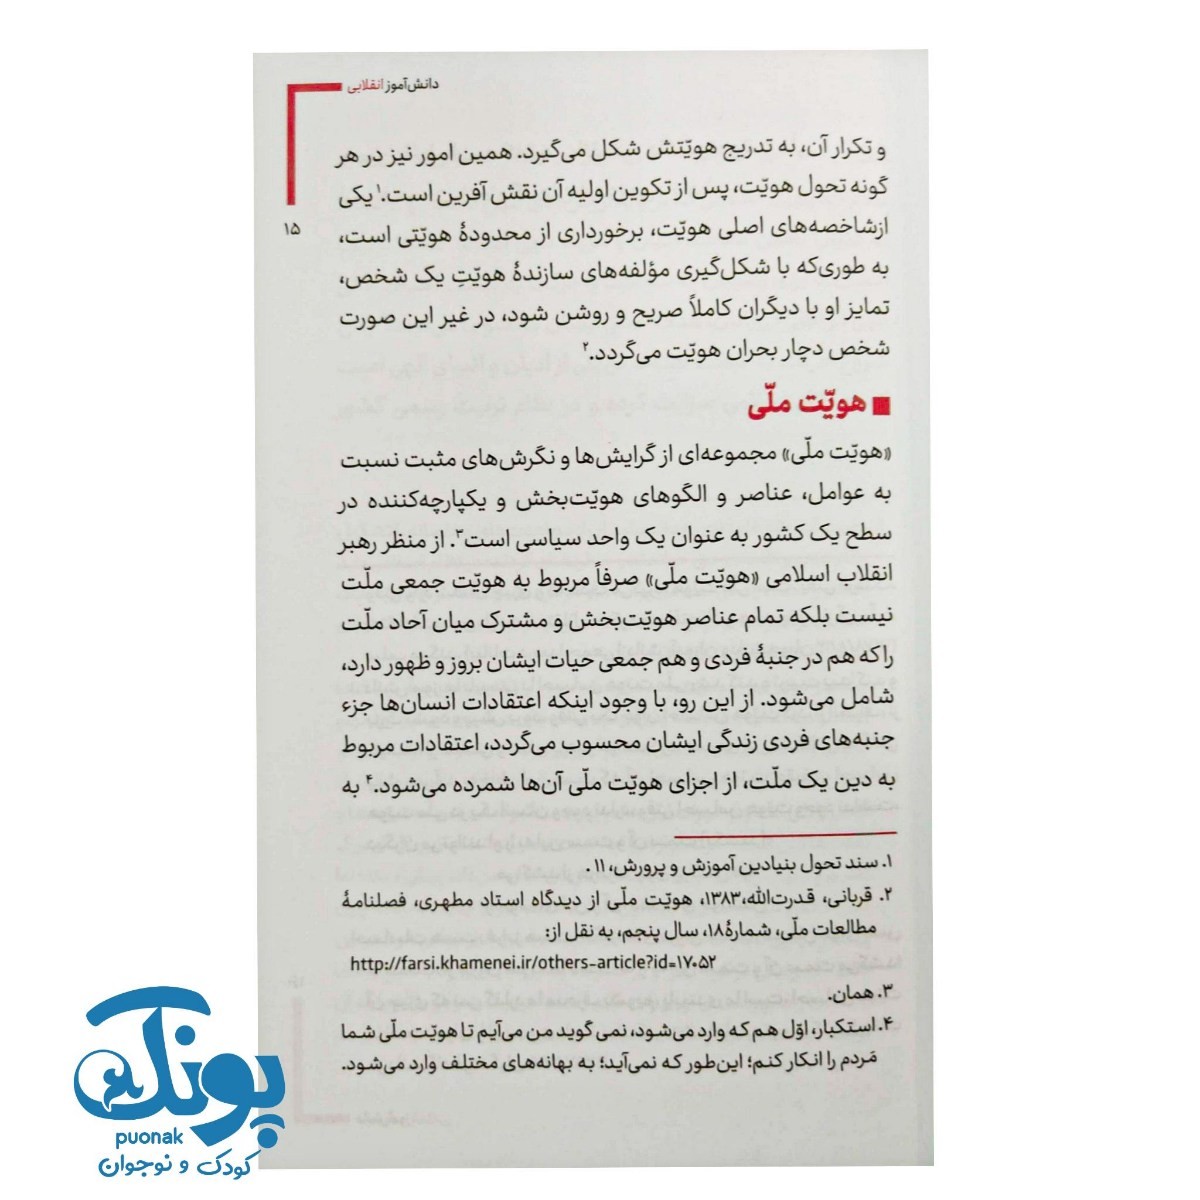 دانش‌آموز انقلابی
۱۵
و تکرار آن، به تدریج هویّتش شکل می‌گیرد. همین امور نیز در هر
گونه تحول هویّت، پس از تکوین اولیه آن نقش آفرین است.۱ یکی
ازشاخصه‌های اصلی هویّت، برخورداری از محدودۀ هویّتی است،
به طوری‌که با شکل‌گیری مؤلفه‌های سازندۀ هویّتِ یک شخص،
تمایز او با دیگران کاملاً صریح و روشن شود، در غیر این صورت
شخص دچار بحران هویّت می‌گردد.۲
هویّت ملّی
«هویّت ملّی» مجموعه‌ای از گرایش‌ها و نگرش‌های مثبت نسبت
به عوامل، عناصر و الگوهای هویّت‌بخش و یکپارچه‌کننده در
سطح یک کشور به عنوان یک واحد سیاسی است۳. از منظر رهبر
انقلاب اسلامی «هویّت ملّی» صرفاً مربوط به هویّت جمعی ملّت
نیست بلکه تمام عناصر هویّت‌بخش و مشترک میان آحاد ملّت
را که هم در جنبۀ فردی و هم جمعی حیات ایشان بروز و ظهور دارد،
شامل می‌شود. از این رو، با وجود اینکه اعتقادات انسان‌ها جزء
جنبه‌های فردی زندگی ایشان محسوب می‌گردد، اعتقادات مربوط
به دین یک ملّت، از اجزای هویّت ملّی آن‌ها شمرده می‌شود.۴ به
۱. سند تحول بنیادین آموزش و پرورش، ۱۱ .
۲. قربانی، قدرت‌الله،۱۳۸۳، هویّت ملّی از دیدگاه استاد مطهری، فصلنامۀ
مطالعات ملّی، شمارۀ۱۸، سال پنجم، به نقل از:
http://farsi.khamenei.ir/others-article?id=۱۷۰۵۲
۳. همان.
۴. استکبار، اوّل هم که وارد می‌شود، نمی گوید من می‌آیم تا هویّت ملّی شما
مَردم را انکار کنم؛ این‌طور که نمی‌آید؛ به بهانه‌های مختلف وارد می‌شود.
پونک
puonak
کودک و نوجوان